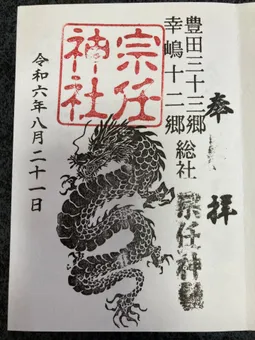 奉拝
豊田三十三郷
幸嶋十二郷
総社
宗任神社
宗任神社
令和六年八月二十一日